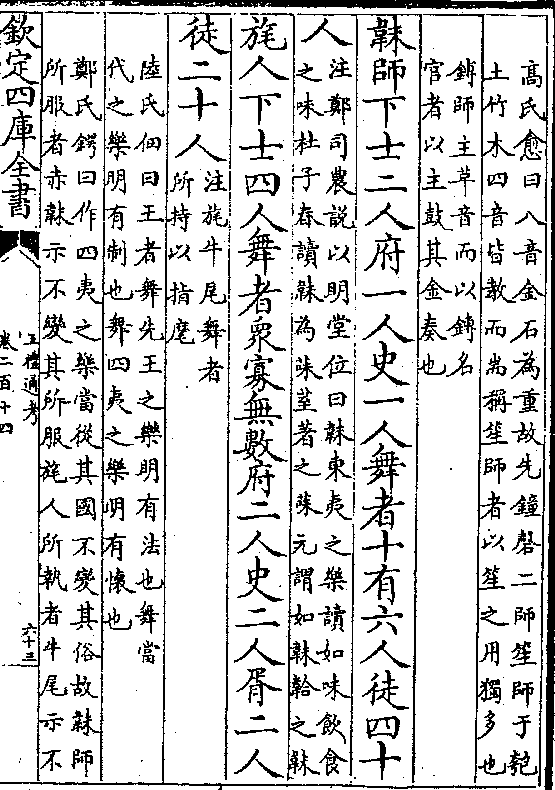 高氏愈曰八音金石為重故先鐘磬二師笙師于匏
土竹木四音皆教而耑稱笙師者以笙之用獨多也
鎛師主革音而以鎛名
官者以主鼓其金奏也
韎師下士二人府一人史一人舞者十有六人徒四十
人
注鄭司農說以明堂位曰韎東夷之樂讀如味飲食
之味杜子春讀韎為菋荎著之菋元謂如韎韐之韎
旄人下士四人舞者衆寡無數府二人史二人胥二人
徒二十人
注旄牛尾舞者
所持以指麾
陸氏佃曰王者舞先王之樂明有法也舞當
代之樂明有制也舞四夷之樂明有懷也
鄭氏鍔曰作四夷之樂當從其國不變其俗故韎師
所服者赤韎示不變其所服旄人所執者牛尾示不
欽定四庫全書
五禮通考
卷二百十四
六十三